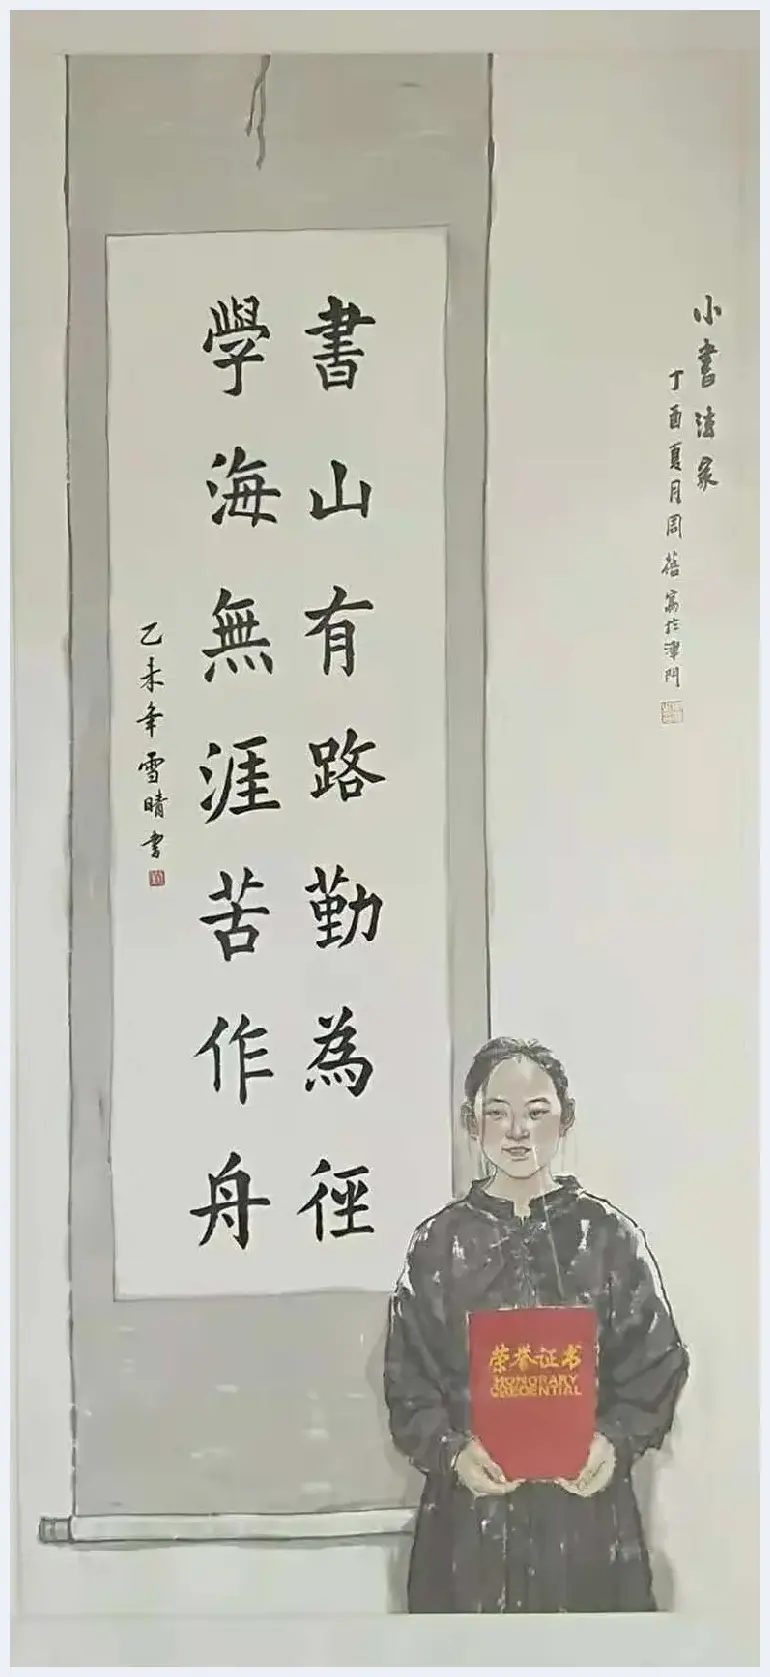 小書法家
丁酉夏月周蓓寫於津門
書山有路勤為徑
學海無涯苦作舟
乙未年雪晴書
荣誉证书
HONORARY
CREDENTIAL